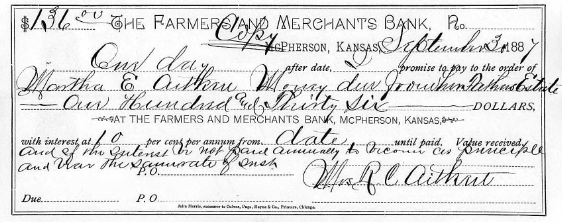 $136 00 THE FARMERS AND MERCHANTS BANK, No.
Copy
McPHERSON, KANSAS, September 30 1887
One day after date, I promise to pay to the order of
Martha E Aitkin Money due from her Fathers Estate
One Hundred and Thirty Six DOLLARS,
AT THE FARMERS AND MERCHANTS BANK, McPHERSON, KANSAS,
with interest at 10 per cent per annum from date until paid. Value received
and if the interest be not paid annually to become as principle
and bear the same rate of
P.O. Mrs R C Aitken
Due P.O.